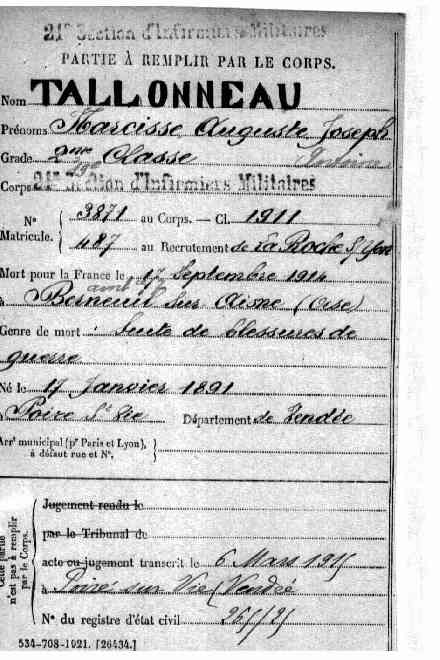 21e Section d'Infirmiers Militaires
PARTIE À REMPLIR PAR LE CORPS.
Nom TALLONNEAU
Prénoms Narcisse Auguste Joseph
Grade 2me Classe
Corps Section d'Infirmiers Militaires
N° Matricule. { 3871 au Corps. — Cl. 1911
487 au Recrutement de La Roche s/ Yon
Mort pour la France le 17 Septembre 1914
à Berneuil sur Aisne (Oise)
Genre de mort : Suite de blessures de
guerre
Né le 17 Janvier 1891
à Poiré s/ Vie Département de Vendée
Arrt municipal (pr Paris et Lyon),
à défaut rue et N°. }
Cette partie
n'est pas à remplir
par le Corps.
Jugement rendu le
par le Tribunal de
acte ou jugement transcrit le 6 Mars 1915
à Poiré sur Vie (Vendée
N° du registre d'état civil
534-708-1921. [26434.]